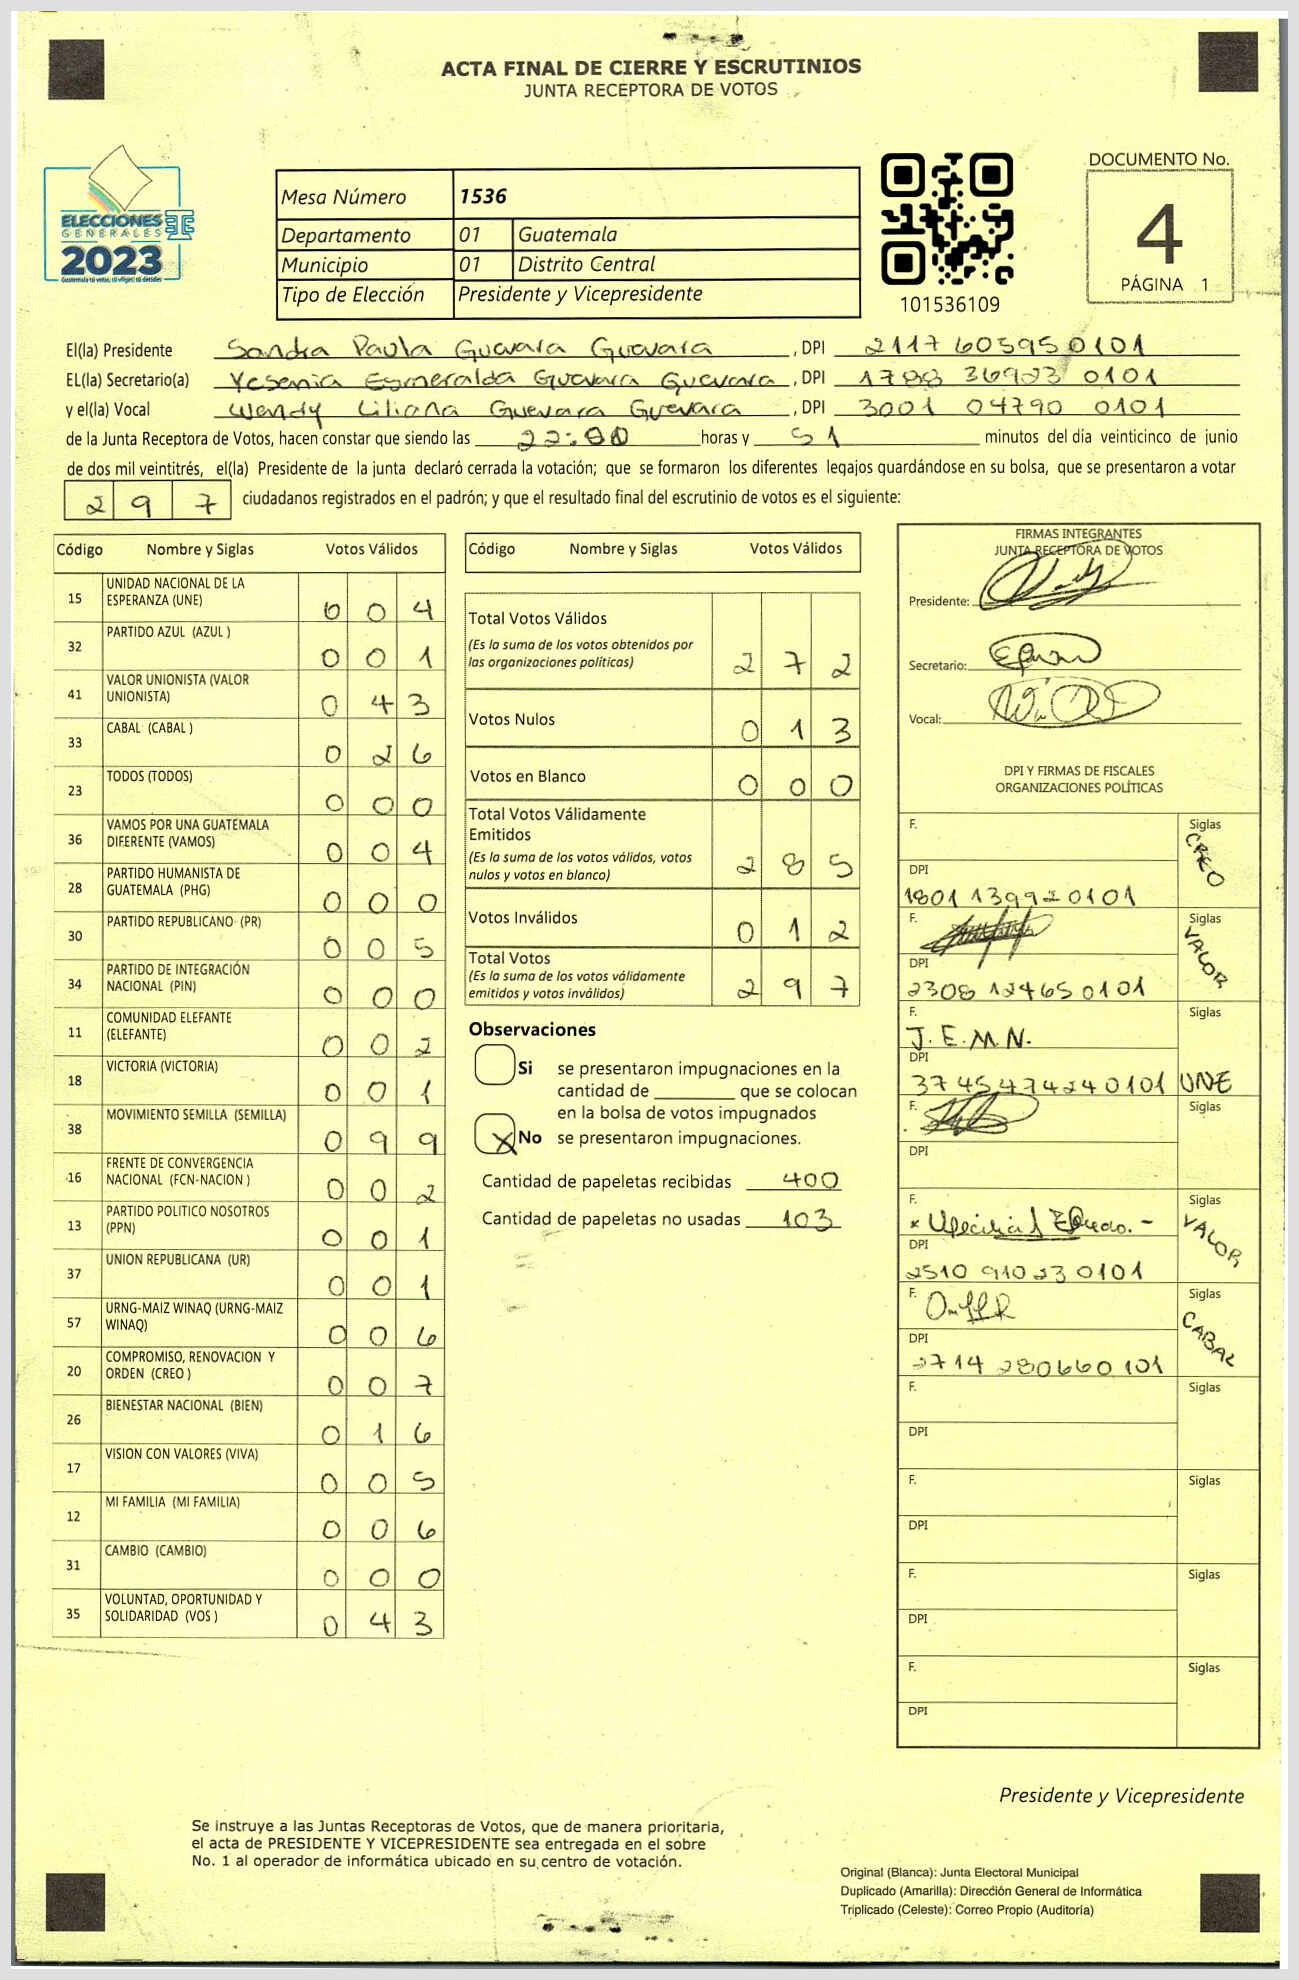 ACTA FINAL DE CIERRE Y ESCRUTINIOS
JUNTA RECEPTORA DE VOTOS
ELECCIONES
GENERALES
2023
Mesa Número 1536
Departamento 01 Guatemala
Municipio 01 Distrito Central
Tipo de Elección Presidente y Vicepresidente
101536109
DOCUMENTO No.
4
PÁGINA 1
El(la) Presidente Sandra Paula Guevara Guevara , DPI 2117 60595 0101
EL(la) Secretario(a) Yesenia Esmeralda Guevara Guevara , DPI 1788 36923 0101
y el(la) Vocal Wendy Liliana Guevara Guevara , DPI 3001 04790 0101
de la Junta Receptora de Votos, hacen constar que siendo las 22:00 horas y 51 minutos del día veinticinco de junio
de dos mil veintitrés, el(la) Presidente de la junta declaró cerrada la votación; que se formaron los diferentes legajos guardándose en su bolsa, que se presentaron a votar
297 ciudadanos registrados en el padrón; y que el resultado final del escrutinio de votos es el siguiente:
Código Nombre y Siglas Votos Válidos
15 UNIDAD NACIONAL DE LA ESPERANZA (UNE) 0 0 4
32 PARTIDO AZUL (AZUL ) 0 0 1
41 VALOR UNIONISTA (VALOR UNIONISTA) 0 4 3
33 CABAL (CABAL ) 0 2 6
23 TODOS (TODOS) 0 0 0
36 VAMOS POR UNA GUATEMALA DIFERENTE (VAMOS) 0 0 4
28 PARTIDO HUMANISTA DE GUATEMALA (PHG) 0 0 0
30 PARTIDO REPUBLICANO (PR) 0 0 5
34 PARTIDO DE INTEGRACIÓN NACIONAL (PIN) 0 0 0
11 COMUNIDAD ELEFANTE (ELEFANTE) 0 0 2
18 VICTORIA (VICTORIA) 0 0 1
38 MOVIMIENTO SEMILLA (SEMILLA) 0 9 9
16 FRENTE DE CONVERGENCIA NACIONAL (FCN-NACION ) 0 0 2
13 PARTIDO POLITICO NOSOTROS (PPN) 0 0 1
37 UNION REPUBLICANA (UR) 0 0 1
57 URNG-MAIZ WINAQ (URNG-MAIZ WINAQ) 0 0 6
20 COMPROMISO, RENOVACION Y ORDEN (CREO ) 0 0 7
26 BIENESTAR NACIONAL (BIEN) 0 1 6
17 VISION CON VALORES (VIVA) 0 0 5
12 MI FAMILIA (MI FAMILIA) 0 0 6
31 CAMBIO (CAMBIO) 0 0 0
35 VOLUNTAD, OPORTUNIDAD Y SOLIDARIDAD (VOS ) 0 4 3
Código Nombre y Siglas Votos Válidos
Total Votos Válidos 2 7 2
(Es la suma de los votos obtenidos por
las organizaciones políticas)
Votos Nulos 0 1 3
Votos en Blanco 0 0 0
Total Votos Válidamente
Emitidos 2 8 5
(Es la suma de los votos válidos, votos
nulos y votos en blanco)
Votos Inválidos 0 1 2
Total Votos 2 9 7
(Es la suma de los votos válidamente
emitidos y votos inválidos)
Observaciones
Si se presentaron impugnaciones en la
cantidad de ________ que se colocan
en la bolsa de votos impugnados
X No se presentaron impugnaciones.
Cantidad de papeletas recibidas 400
Cantidad de papeletas no usadas 103
FIRMAS INTEGRANTES
JUNTA RECEPTORA DE VOTOS
Presidente:
Secretario:
Vocal:
DPI Y FIRMAS DE FISCALES
ORGANIZACIONES POLÍTICAS
F. Siglas CREO
DPI 1801 13992 0101
F. Siglas VALOR
DPI 2308 12465 0101
F. J.E.M.N. Siglas UNE
DPI 3745474240101
F. Siglas
DPI
F. Siglas VALOR
DPI 2510 91023 0101
F. Siglas CABAL
DPI 2714 28066 0101
F. Siglas
DPI
F. Siglas
DPI
F. Siglas
DPI
F. Siglas
DPI
Presidente y Vicepresidente
Se instruye a las Juntas Receptoras de Votos, que de manera prioritaria,
el acta de PRESIDENTE Y VICEPRESIDENTE sea entregada en el sobre
No. 1 al operador de informática ubicado en su centro de votación.
Original (Blanca): Junta Electoral Municipal
Duplicado (Amarilla): Dirección General de Informática
Triplicado (Celeste): Correo Propio (Auditoría)